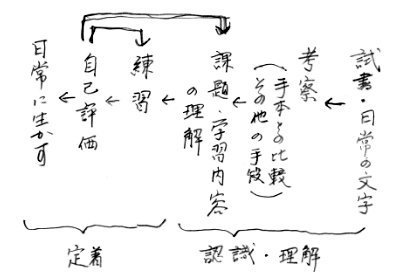 試書・日常の文字
考察
(手本との比較
その他の手段)
課題・学習内容
の理解
練習
自己評価
日常に生かす
認識・理解
定着